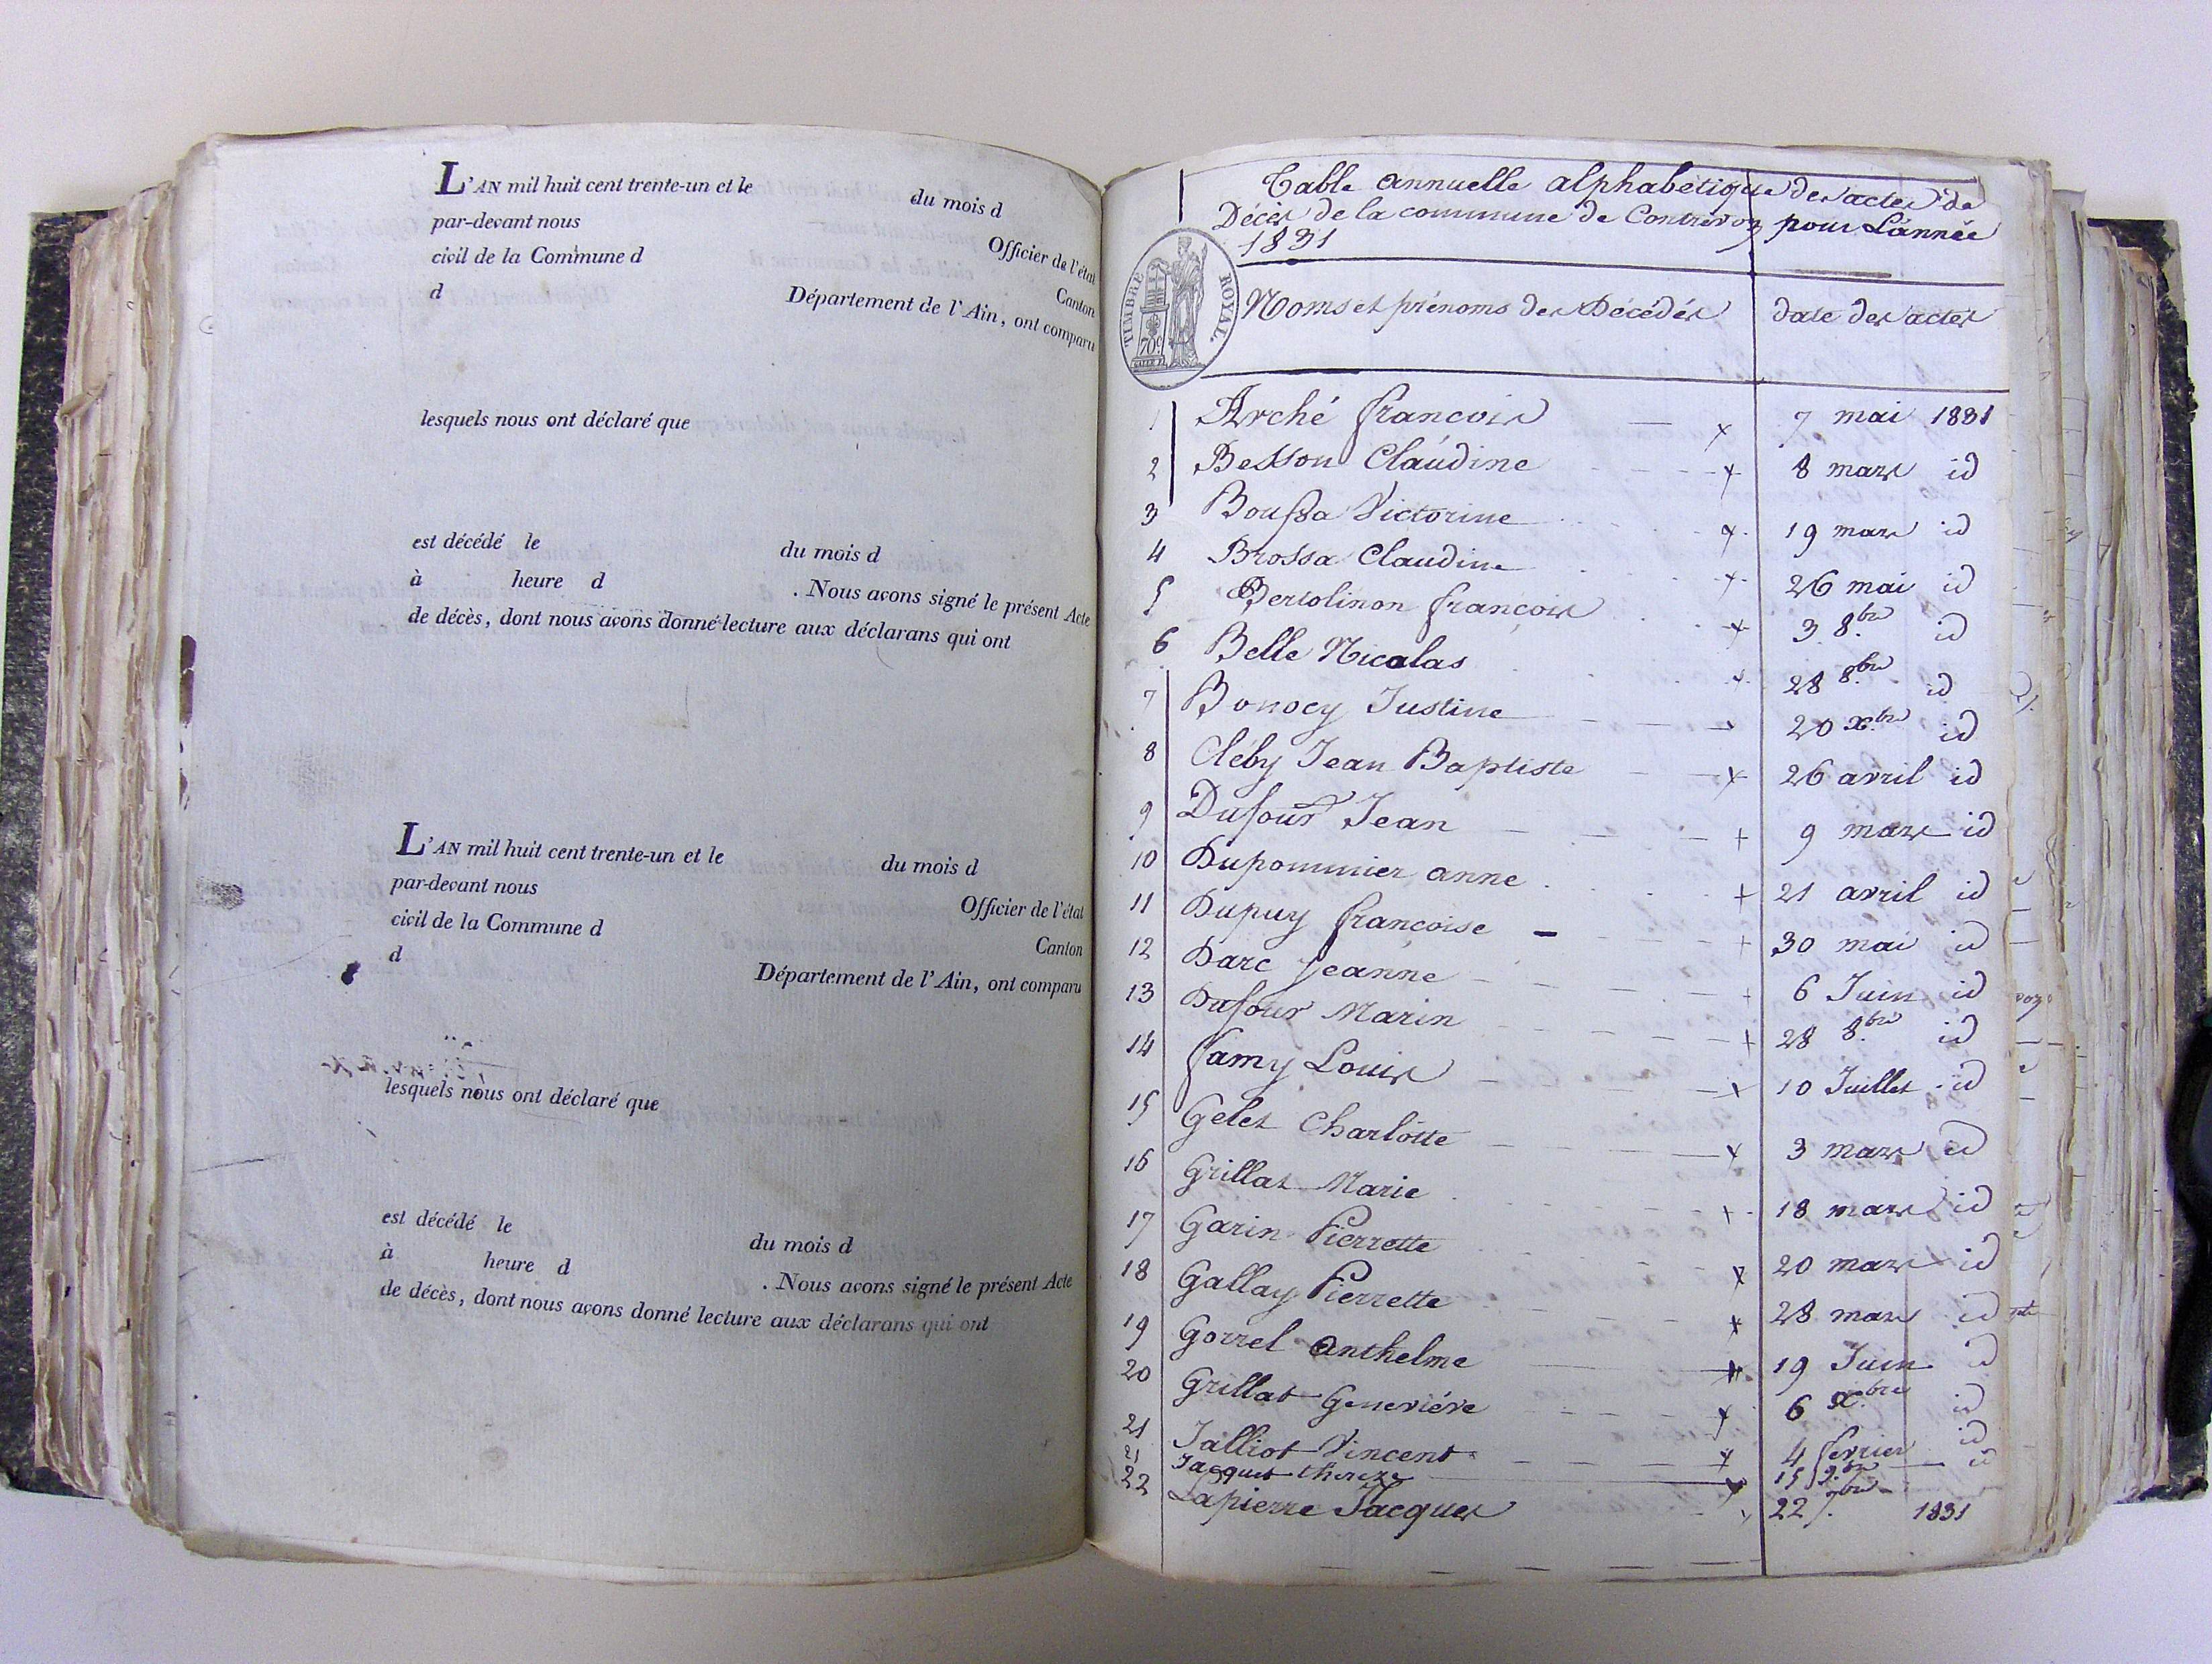 L'AN mil huit cent trente-un et le du mois d
par-devant nous
Officier de l'état
civil de la Commune d
Canton
d
Département de l'Ain, ont comparu
lesquels nous ont déclaré que
est décédé le du mois d
à heure d . Nous avons signé le présent Acte
de décès, dont nous avons donné lecture aux déclarans qui ont
L'AN mil huit cent trente-un et le du mois d
par-devant nous
Officier de l'état
civil de la Commune d
Canton
d
Département de l'Ain, ont comparu
lesquels nous ont déclaré que
est décédé le du mois d
à heure d . Nous avons signé le présent Acte
de décès, dont nous avons donné lecture aux déclarans qui ont
Table annuelle alphabétique des actes de
Décès de la commune de Contrevoz pour L'année
1831
TIMBRE ROYAL.
70c
Noms et prénoms des Décédés date des actes
1 Arché françois x 7 mai 1831
2 Besson Claudine x 8 mars id
3 Boussa Victorine x 19 mars id
4 Brossa Claudine x 26 mai id
5 Bertolinon françois x 3 8.bre id
6 Belle Nicolas x 28 8.bre id
7 Bonocy Justine x 20 x.bre id
8 Cléby Jean Baptiste x 26 avril id
9 Dufour Jean + 9 mars id
10 Dupommier anne + 21 avril id
11 Dupuy françoise + 30 mai id
12 Darc jeanne + 6 Juin id
13 Dufour Marin + 28 8.bre id
14 famy Louis x 10 Juillet id
15 Gelet Charlotte x 3 mars id
16 Grillat Marie + 18 mars id
17 Garin Pierrette x 20 mars id
18 Gallay Pierrette x 28 mars id
19 Gorrel anthelme x 19 Juin id
20 Grillat Geneviéve x 6 x.bre id
21 Jalliot Vincent x 4 fevrier id
21 Jacquet thereze x 15 9.bre id
22 Lapierre Jacques x 22 7.bre 1831